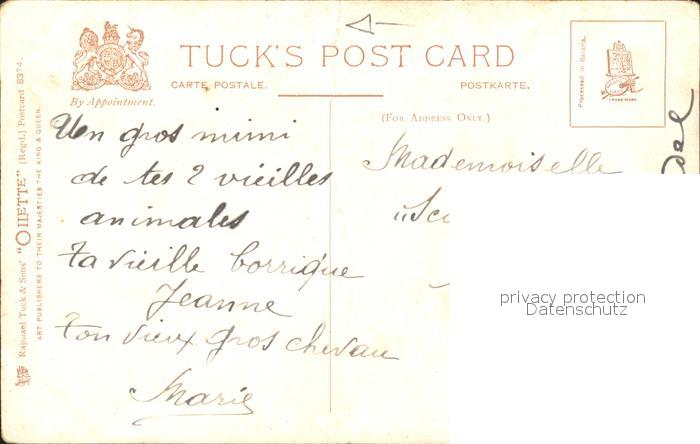 TUCK'S POST CARD
CARTE POSTALE.
POSTKARTE.
By Appointment.
(FOR ADDRESS ONLY.)
Processed in Bavaria.
TRADE MARK
Raphael Tuck & Sons' "OILETTE" [Regd.] Postcard 8374.
ART PUBLISHERS TO THEIR MAJESTIES THE KING & QUEEN.
Un gros mimi
de tes 2 vieilles
animales
ta vieille borrique
Jeanne
ton vieux gros chevau
Marie
Mademoiselle
privacy protection
Datenschutz